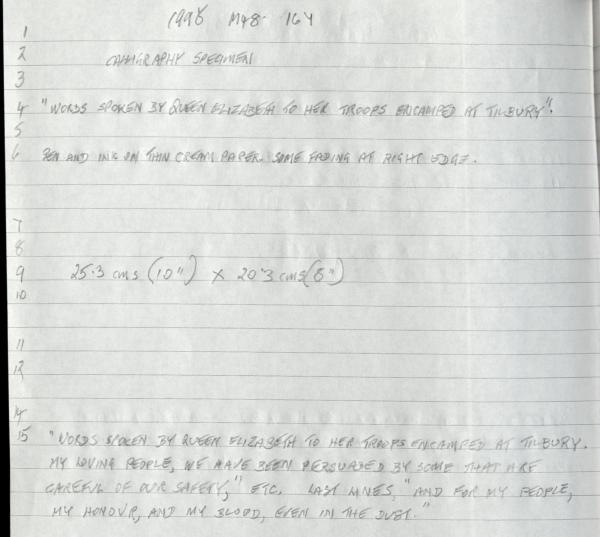 1998 M48 164
1
2 CALLIGRAPHY SPECIMEN
3
4 "WORDS SPOKEN BY QUEEN ELIZABETH TO HER TROOPS ENCAMPED AT TILBURY".
5
6 PEN AND INK ON THIN CREAM PAPER. SOME FADING AT RIGHT EDGE.
7
8
9 25.3 cms (10") x 20.3 cms (8")
10
11
12
14
15 "WORDS SPOKEN BY QUEEN ELIZABETH TO HER TROOPS ENCAMPED AT TILBURY.
MY LOVING PEOPLE, WE HAVE BEEN PERSUADED BY SOME THAT ARE
CAREFUL OF OUR SAFETY," ETC. LAST LINES, "AND FOR MY PEOPLE,
MY HONOUR, AND MY BLOOD, EVEN IN THE DUST."